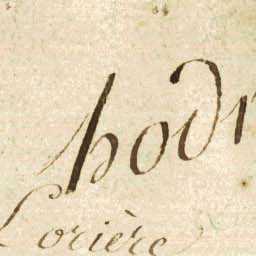 hodr
Lorière